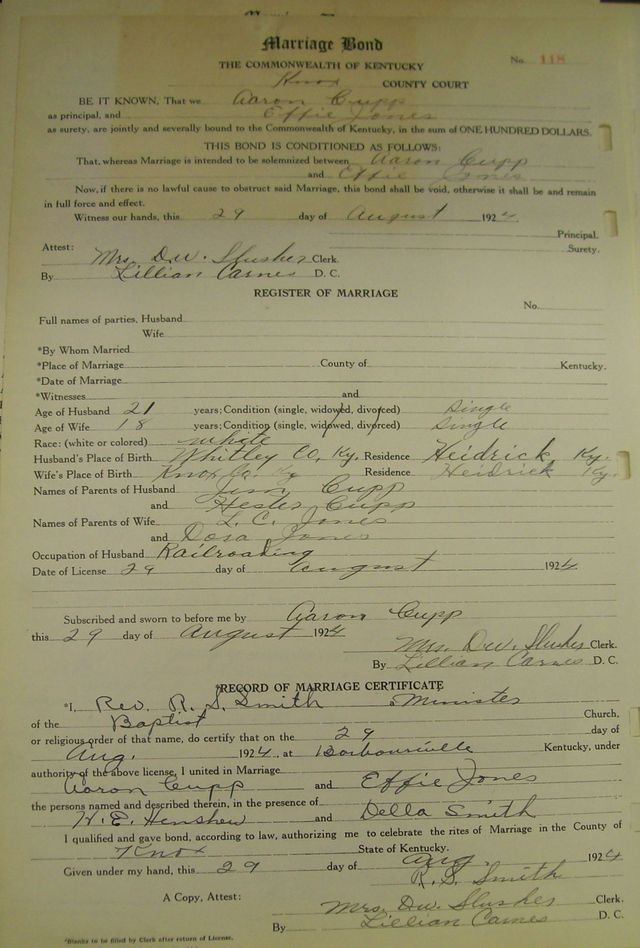 Marriage Bond
No. 118
THE COMMONWEALTH OF KENTUCKY
Knox COUNTY COURT
BE IT KNOWN, That we Aaron Cupp
as principal, and Effie Jones
as surety, are jointly and severally bound to the Commonwealth of Kentucky, in the sum of ONE HUNDRED DOLLARS.
THIS BOND IS CONDITIONED AS FOLLOWS:
That, whereas Marriage is intended to be solemnized between Aaron Cupp
and Effie Jones
Now, if there is no lawful cause to obstruct said Marriage, this bond shall be void, otherwise it shall be and remain
in full force and effect.
Witness our hands, this 29 day of August 1924.
Principal.
Surety.
Attest:
Mrs. D.W. Slusher Clerk.
By Lillian Carnes D. C.
REGISTER OF MARRIAGE
No.
Full names of parties, Husband
Wife
*By Whom Married
*Place of Marriage County of Kentucky.
*Date of Marriage
*Witnesses and
Age of Husband 21 years; Condition (single, widowed, divorced) Single
Age of Wife 18 years; Condition (single, widowed, divorced) Single
Race: (white or colored) White
Husband's Place of Birth Whitley Co, Ky. Residence Heidrick, Ky.
Wife's Place of Birth Knox Co. Ky Residence Heidrick Ky.
Names of Parents of Husband Jim Cupp
and Hester Cupp
Names of Parents of Wife L. C. Jones
and Dora Jones
Occupation of Husband Railroading
Date of License 29 day of August 1924
Subscribed and sworn to before me by Aaron Cupp
this 29 day of August 1924
Mrs. D.W. Slusher Clerk.
By Lillian Carnes D. C.
*RECORD OF MARRIAGE CERTIFICATE
*I, Rev. R. S. Smith a Minister
of the Baptist Church,
or religious order of that name, do certify that on the 29 day of
Aug. 1924, at Barbourville Kentucky, under
authority of the above license, I united in Marriage
Aaron Cupp and Effie Jones
the persons named and described therein, in the presence of
W. E. Henshew and Della Smith
I qualified and gave bond, according to law, authorizing me to celebrate the rites of Marriage in the County of
Knox State of Kentucky.
Given under my hand, this 29 day of Aug. 1924
R. S. Smith
A Copy, Attest:
Mrs. D.W. Slusher Clerk.
By Lillian Carnes D. C.
*Blanks to be filled by Clerk after return of License.